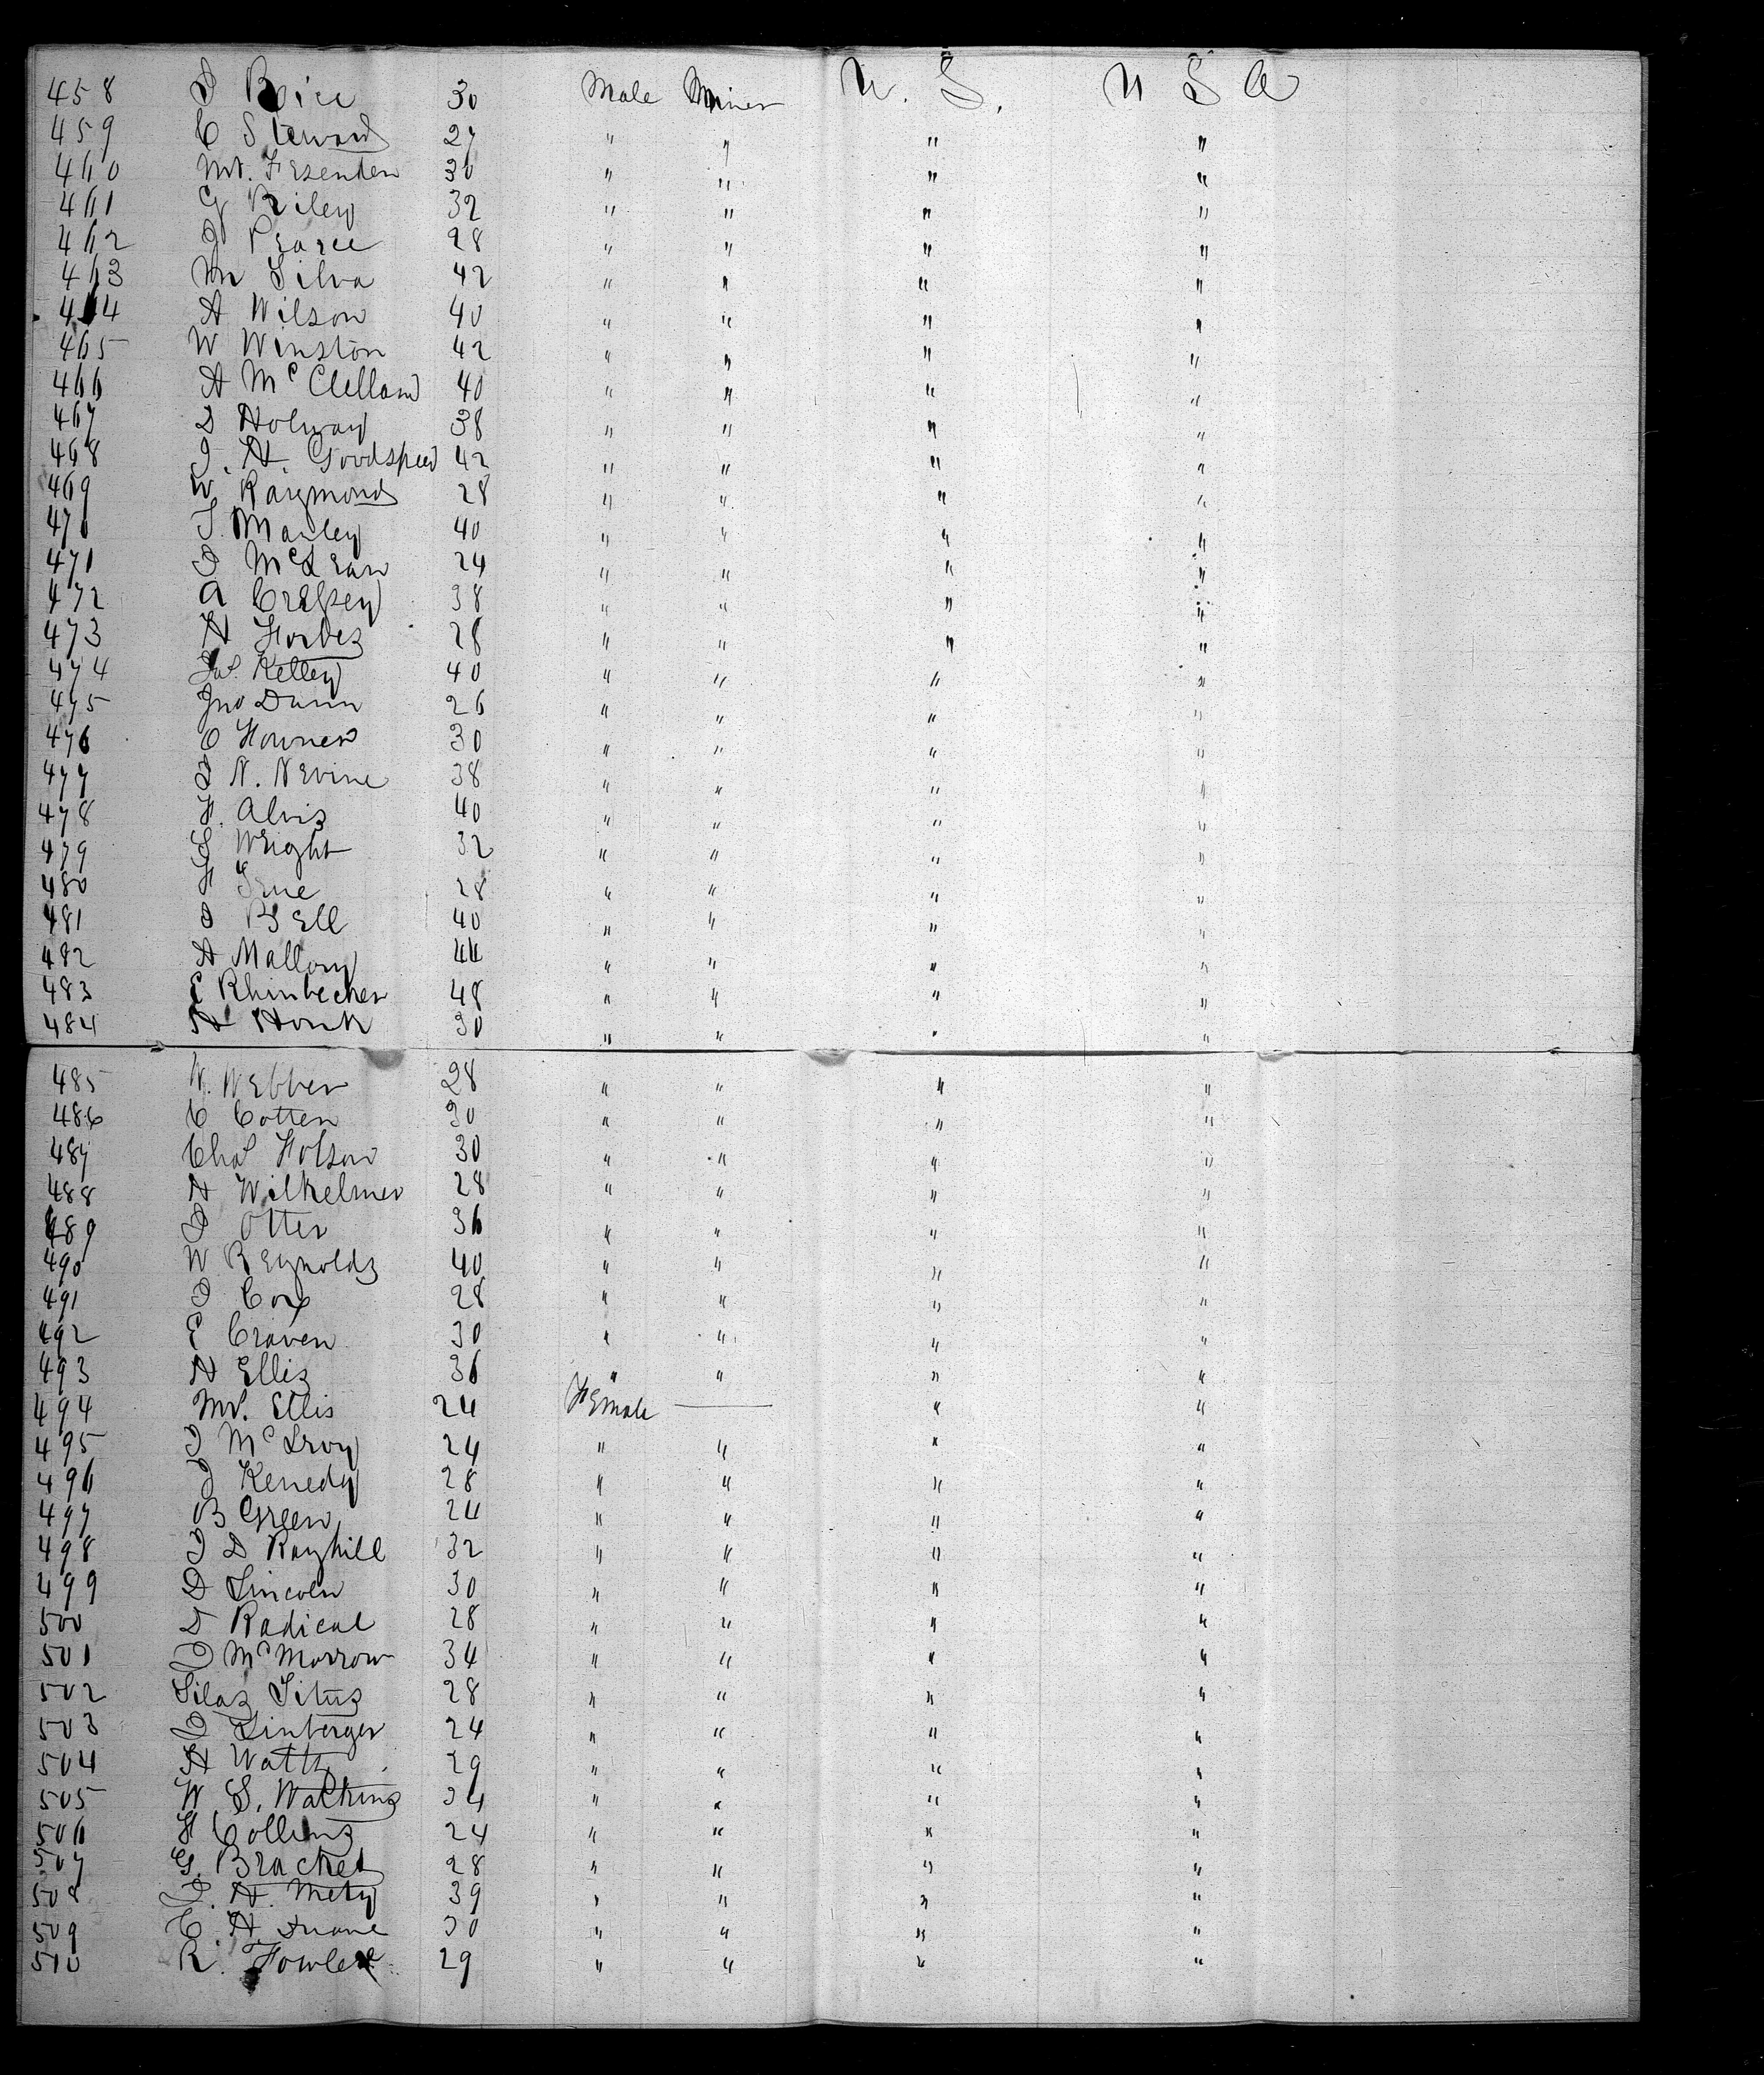 458 Rice 30 Male Miner U. S. U S A
459 C Steward 27 " " " "
460 Mr. Fesenden 30 " " " "
461 G Riley 32 " " " "
462 J Pearce 28 " " " "
463 M Silva 42 " " " "
464 A Wilson 40 " " " "
465 W Winston 42 " " " "
466 A McClelland 40 " " " "
467 D Holway 38 " " " "
468 J. H. Goodspeed 42 " " " "
469 W Raymond 28 " " " "
470 T. Manley 40 " " " "
471 D McLean 24 " " " "
472 A Crepsey 38 " " " "
473 H Forbes 28 " " " "
474 Jas. Kelley 40 " " " "
475 Jno Dunn 26 " " " "
476 30 " " " "
477 N. Nevine 38 " " " "
478 H. Alvis 40 " " " "
479 S Wright 32 " " " "
480 H True 28 " " " "
481 Bell 40 " " " "
482 A Mallory 44 " " " "
483 E Rhinbecker 48 " " " "
484 H Houk 30 " " " "
485 W. Webber 28 " " " "
486 C Cotten 30 " " " "
487 Chas Hobson 30 " " " "
488 H Wilkelmer 28 " " " "
489 D Otter 36 " " " "
490 W Reynolds 40 " " " "
491 D Cox 28 " " " "
492 E Craven 30 " " " "
493 H Ellis 36 " " " "
494 Mrs. Ellis 24 Female — " "
495 J McLroy 24 " " " "
496 J Kenedy 28 " " " "
497 B Green 24 " " " "
498 J D Rayhill 32 " " " "
499 D Lincoln 30 " " " "
500 D Radical 28 " " " "
501 McMorrow 34 " " " "
502 Silas Titus 28 " " " "
503 Linberger 24 " " " "
504 H Watts 29 " " " "
505 W S. Watkins 34 " " " "
506 H Collins 24 " " " "
507 G. Bracket 28 " " " "
508 H. Mety 39 " " " "
509 C. H. Duane 30 " " " "
510 R. Fowler 29 " " " "